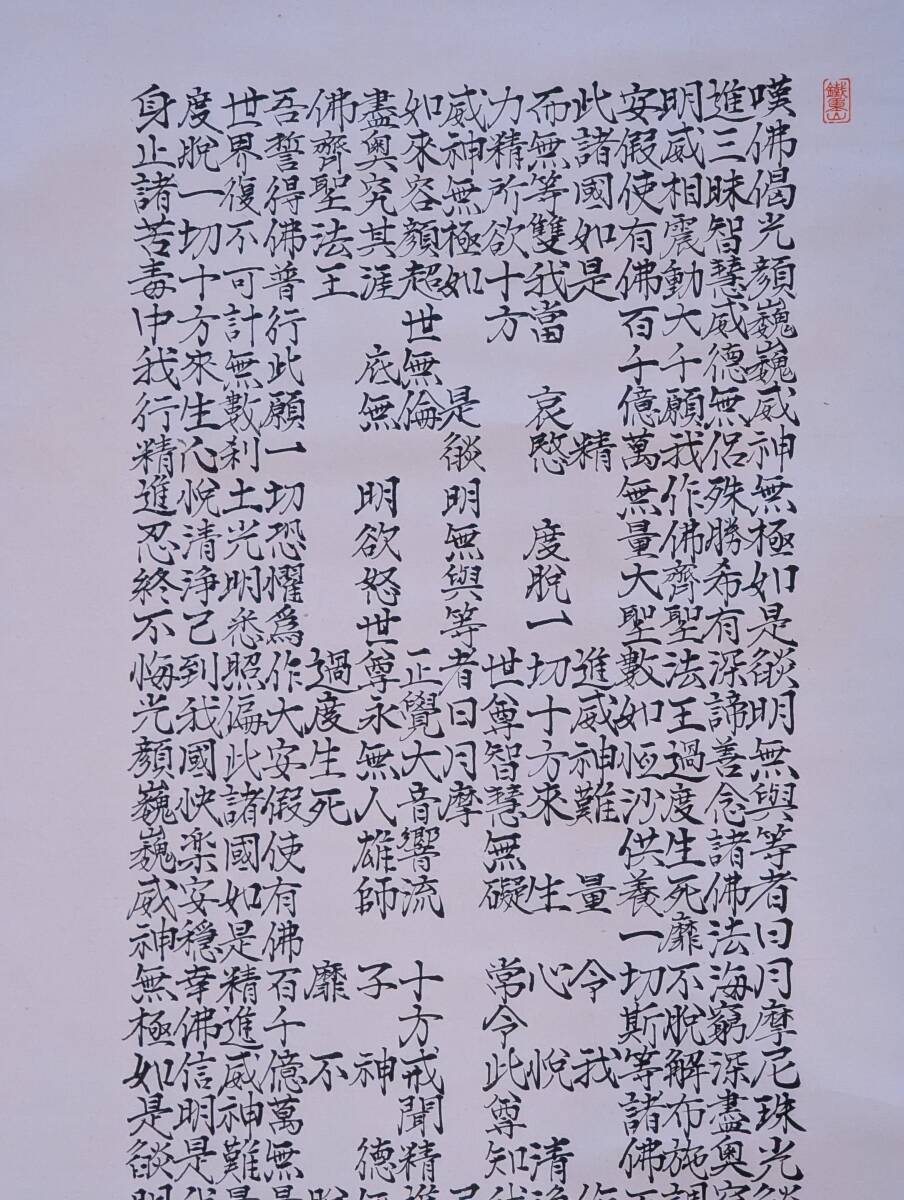 嘆佛偈光顔巍巍威神無極如是燄明無與等者日月摩尼珠光燄
進三昧智慧威德無侶殊勝希有深諦善念諸佛法海窮深盡奧
明威相震動大千願我作佛齊聖法王過度生死靡不脱解布施調
安假使有佛百千億萬無量大聖數如恒沙供養一切斯等諸佛
此諸國如是 精 進威神難 量 令 我 作
而無等雙我當 哀愍 度脱一切十方來 生 心 悦 清浄
力精所欲十方 世尊智慧無礙 常令此尊知我
威神無極如 是燄明無與等者日月摩
如來容顔超世無倫 正覺大音響流 十方戒聞精進
盡奧究其涯 底無 明欲怒世尊永無人雄師 子 神 德無
佛齊聖法王 過度生死 靡 不 脱
吾誓得佛普行此願一切恐懼爲作大安假使有佛百千億萬無量
世界復不可計無數刹土光明悉照偏此諸國如是精進威神難量
度脱一切十方來生心悦清浄已到我國快楽安穩幸佛信明是我
身止諸苦毒中我行精進忍終不悔光顔巍巍威神無極如是燄明